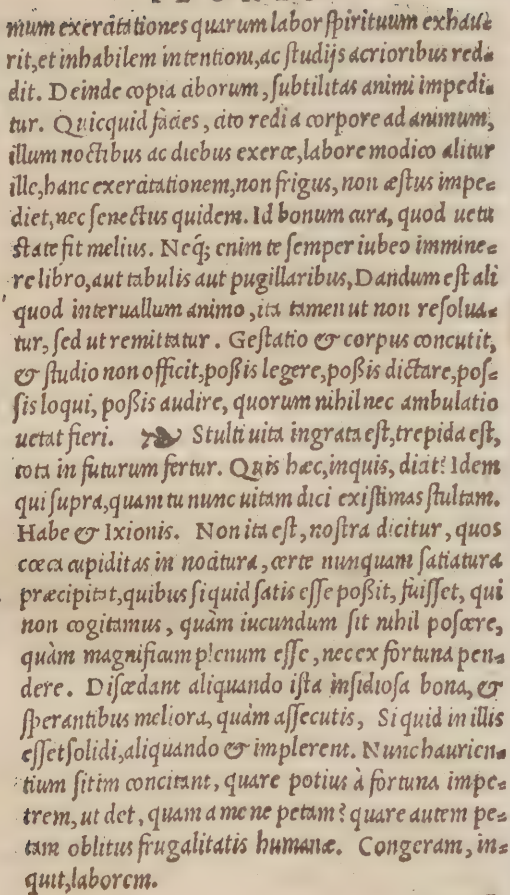 mum exercitationes quarum labor spirituum exhau⸗
rit, et inhabilem intentioni, ac studijs acrioribus red⸗
dit. Deinde copia ciborum, subtilitas animi impedi⸗
tur. Quicquid facies, cito redi a corpore ad animum,
illum noctibus ac diebus exerce, labore modico alitur
ille, hanc exercitationem, non frigus, non æstus impe⸗
diet, nec senectus quidem. Id bonum cura, quod uetu
state fit melius. Neq; enim te semper iubeo immine⸗
re libro, aut tabulis aut pugillaribus, Dandum est ali
quod interuallum animo, ita tamen ut non resolua⸗
tur, sed ut remittatur. Gestatio & corpus concutit,
& studio non officit, possis legere, possis dictare, pos⸗
sis loqui, possis audire, quorum nihil nec ambulatio
uetat fieri. ❧ Stulti uita ingrata est, trepida est,
tota in futurum fertur. Quis hæc, inquis, dicit? Idem
qui supra, quam tu nunc uitam dici existimas stultam.
Habe & Ixionis. Non ita est, nostra dicitur, quos
cœca cupiditas in nocitura, certe nunquam satiatura
præcipitat, quibus si quid satis esse possit, fuisset, qui
non cogitamus, quàm iucundum sit nihil poscere,
quàm magnificum plenum esse, nec ex fortuna pen⸗
dere. Discedant aliquando ista insidiosa bona, &
sperantibus meliora, quàm assecutis, Si quid in illis
esset solidi, aliquando & implerent. Nunc haurien⸗
tium sitim concitant, quare potius à fortuna impe⸗
trem, ut det, quam a me ne petam? quare autem pe⸗
tam oblitus frugalitatis humanæ. Congeram, in⸗
quit, laborem.